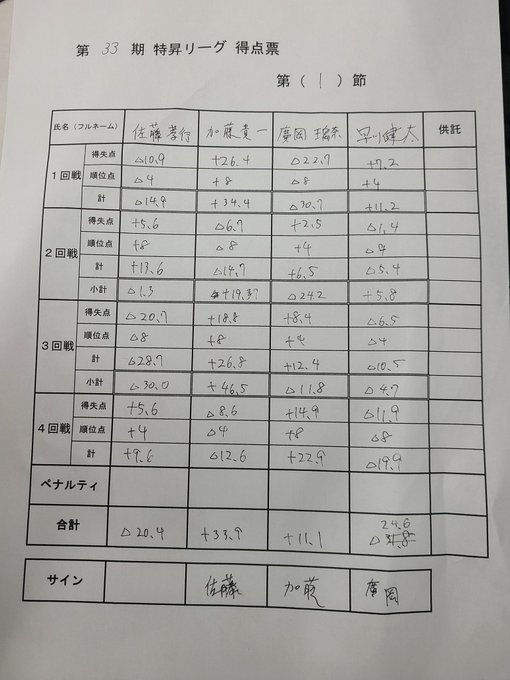 第 33 期 特昇リーグ 得点票
第 ( 1 ) 節
氏名(フルネーム) 佐藤孝行 加藤貴一 廣岡璃奈 早川健太 供託
1回戦 得失点 △10.9 +26.4 △22.7 +7.2
順位点 △4 +8 △8 +4
計 △14.9 +34.4 △30.7 +11.2
2回戦 得失点 +5.6 △6.7 +2.5 △1.4
順位点 +8 △8 +4 △4
計 +13.6 △14.7 +6.5 △5.4
小計 △1.3 +19.7 △24.2 +5.8
3回戦 得失点 △20.7 +18.8 +8.4 △6.5
順位点 △8 +8 +4 △4
計 △28.7 +26.8 +12.4 △10.5
小計 △30.0 +46.5 △11.8 △4.7
4回戦 得失点 +5.6 △8.6 +14.9 △11.9
順位点 +4 △4 +8 △8
計 +9.6 △12.6 +22.9 △19.9
ペナルティ
合計 △20.4 +33.9 +11.1 △24.6
サイン 佐藤 加藤 廣岡